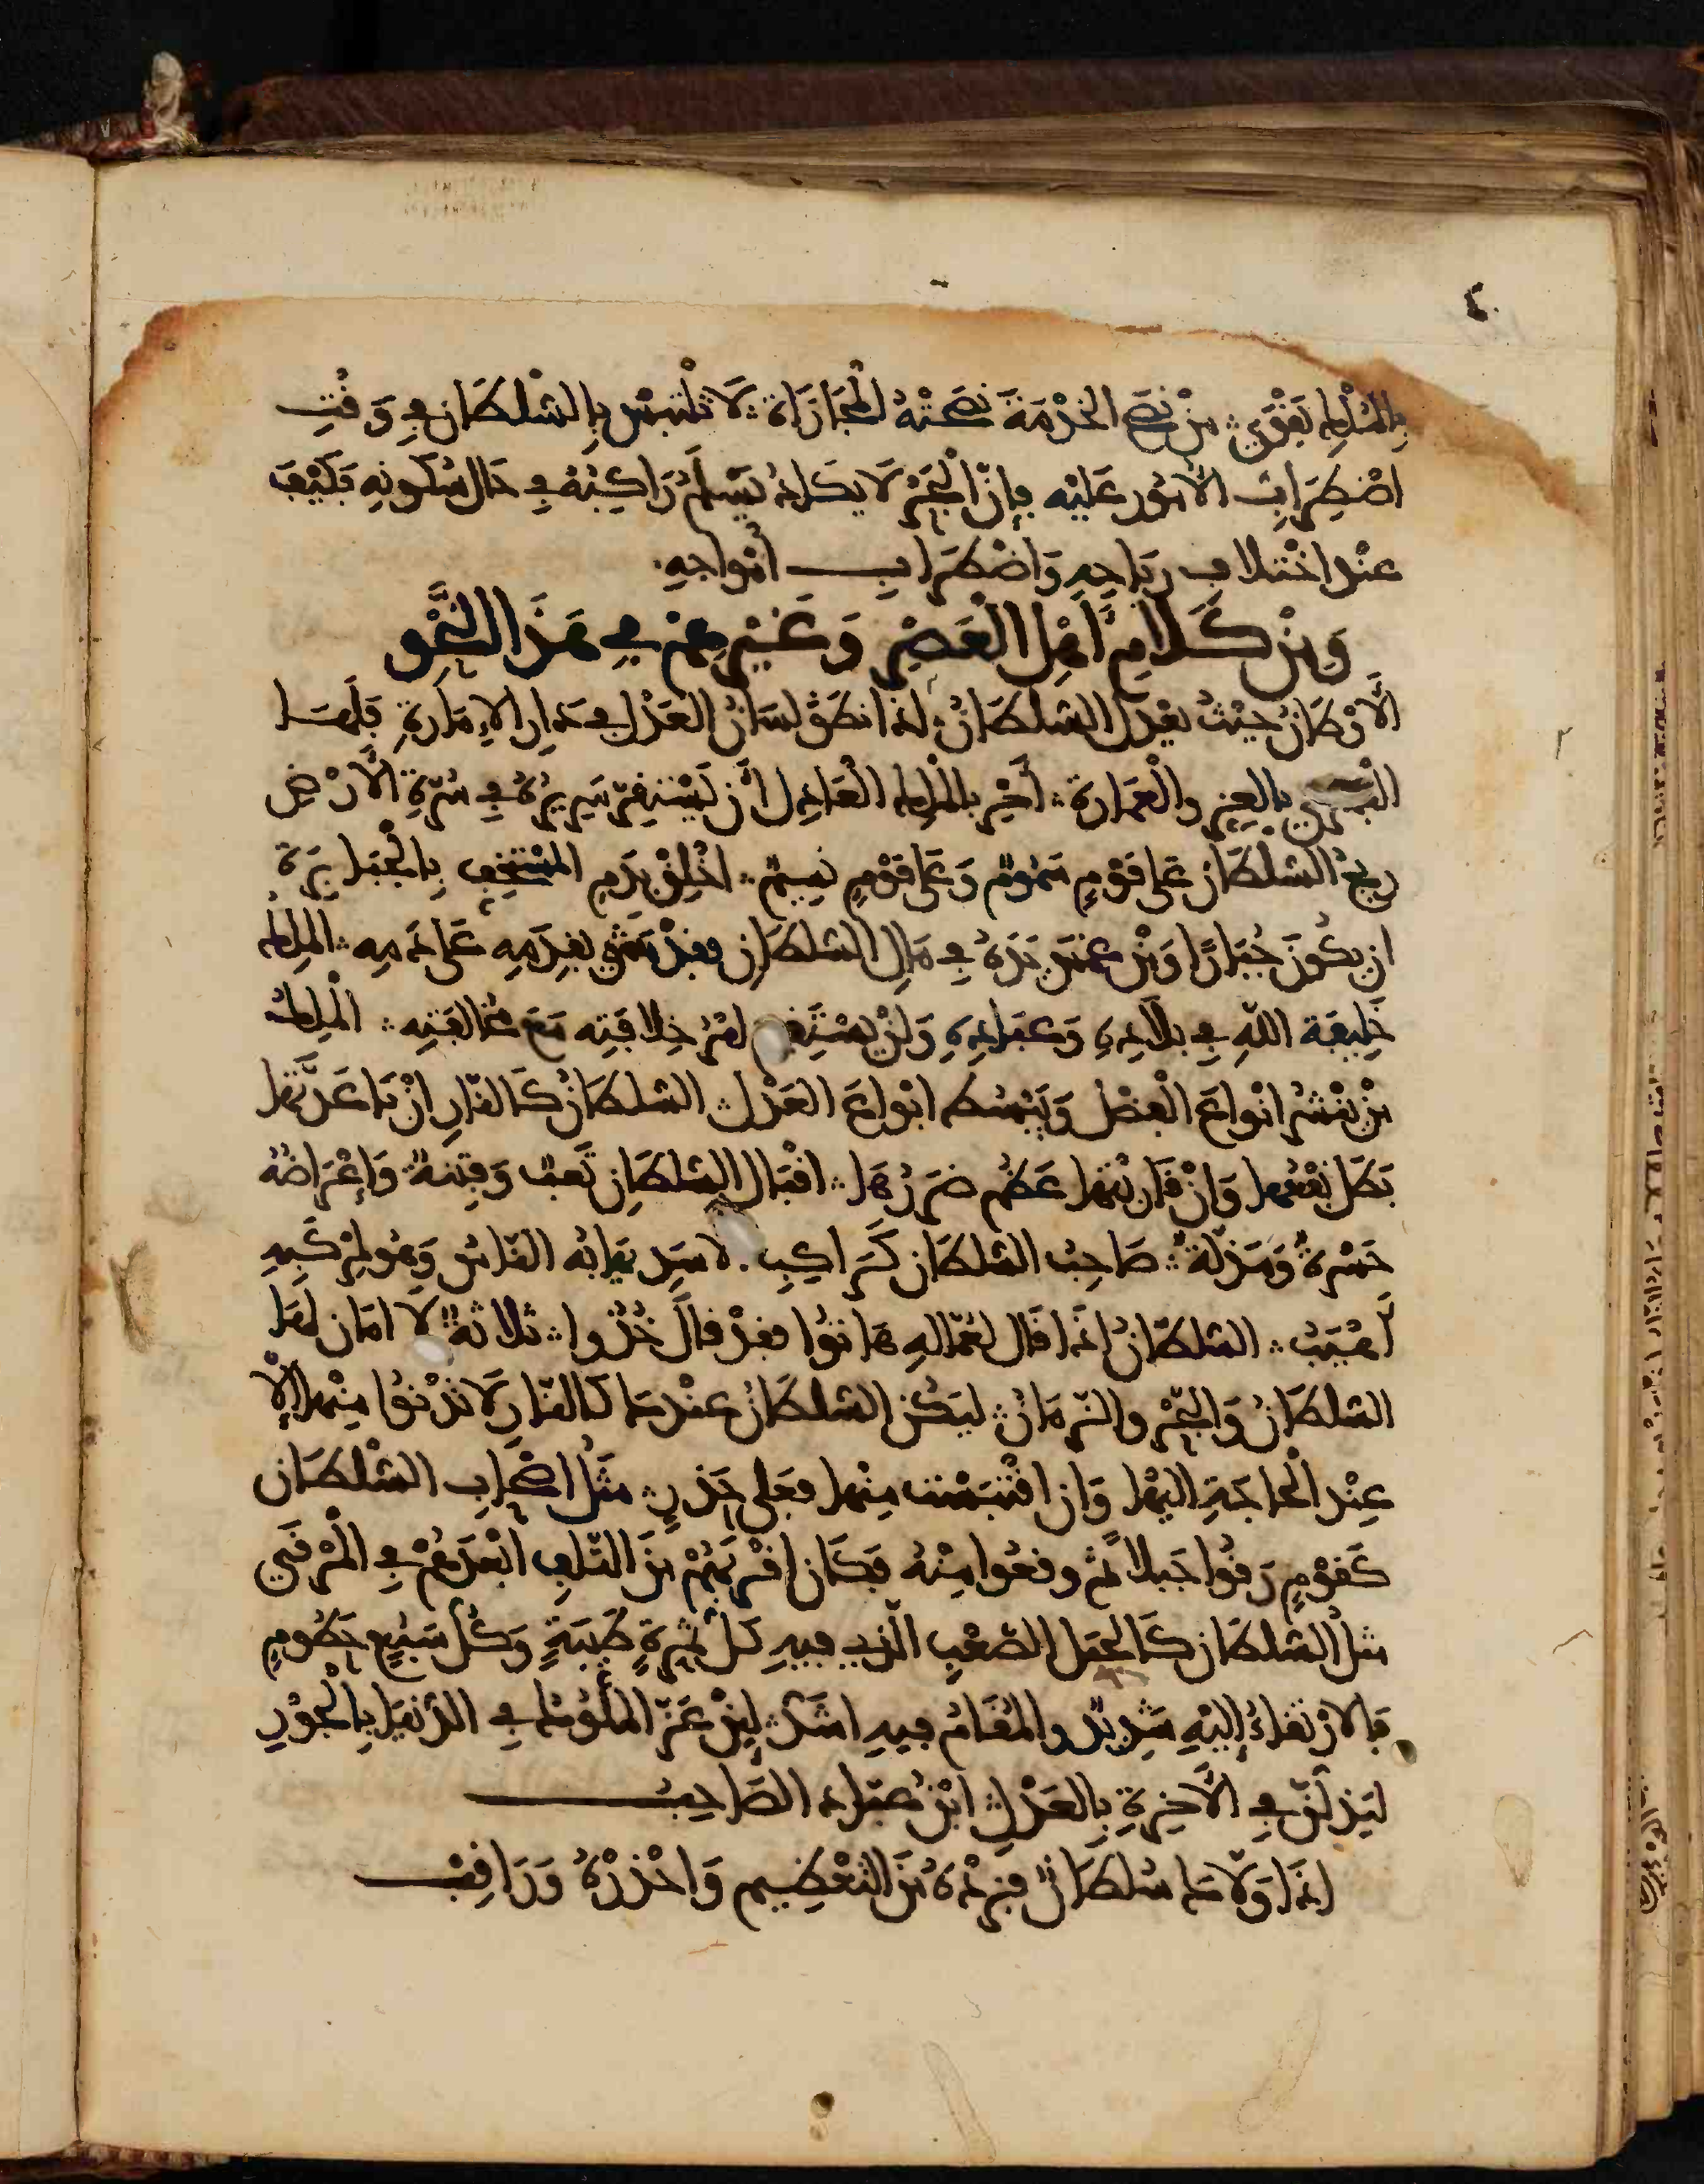 ٤٠
بالملك تقوى ∴ من نصح الخدمة نصحته المجازاة ∴ لا تلتبس بالسلطان في وقت
اضطراب الامور عليه فان البحر لا يكاد يسلم راكبه في حال سكونه فكيف
عند اختلاف رياحه واضطراب أمواجه
ومن كلام أهل العصر وغيرهم في هذا النحو
الأوطان حيث يعدل السلطان ∴ اذا نطق لسان العدل في دار الإمارة فلها
البشرى بالعز والعمارة ∴ أحر بالملك العادل أن يستقر سريره في سرة الأرض
ريح السلطان على قوم سموم وعلى قوم نسيم ∴ اخلق بدم المستخف بالجبابرة
ان يكون جبارا ومن غمس يده في مال السلطان فقد مشى بقدمه على دمه ∴ الملك
خليفة الله في بلاده وعباده ولن يستقيم امر خلافته مع مخالفته ∴ الملك
من ينشر انواع الفضل ويبسط انواع العدل ∴ السلطان كالنار ان باعدتها
بطل نفعها وان قاربتها عظم ضررها ∴ اقبال السلطان تعب وفتنة وإعراضه
حسرة ومذلة ∴ صاحب السلطان كراكب الاسد يهابه الناس وهو لمركبه
أهيب ∴ السلطان اذا قال لعماله هاتوا فقد قال خذوا ∴ ثلاثة لا امان لها
السلطان والبحر والزمان ∴ ليكن السلطان عندك كالنار لا تدنوا منها إلا
عند الحاجة اليها وان اقتبست منها فعلى حذر ∴ مثل اصحاب السلطان
كقوم رقوا جبلا ثم وقعوا منه فكان اقربهم من التلف ابعدهم في المرقى
مثل السلطان كالجبل الصعب الذي فيه كل ثمرة طيبة وكل سبع حطوم
فالارتقاء إليه شديد والمقام فيه اشد ∴ ليس عز الملوك في الدنيا بالجور
ليذلن في الآخرة بالعدل ∴ ابن عباد الصاحب
اذا ولاك سلطان فزده من التعظيم واحذره وراقب